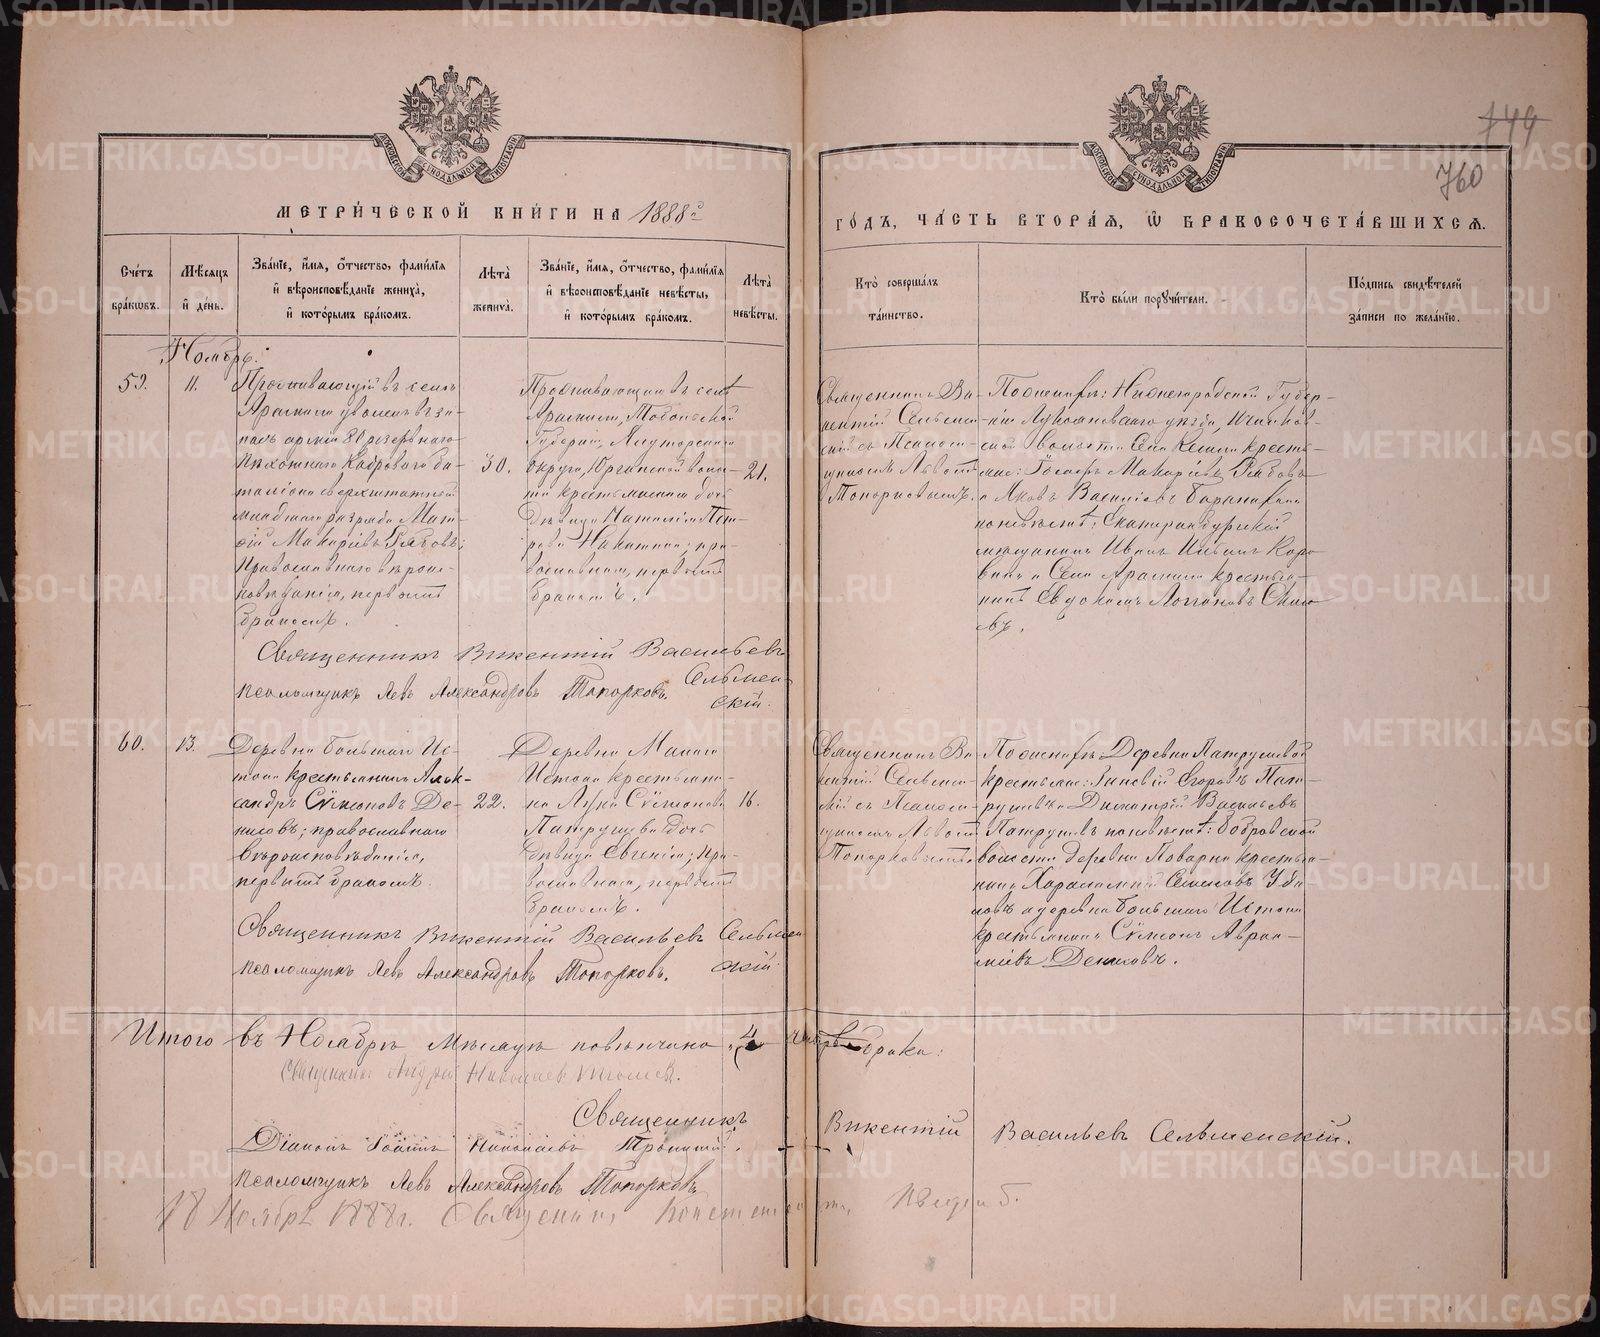 749
760
МОСКОВСКОЙ СѴНОДАЛЬНОЙ ТИПОГРАФІИ
МОСКОВСКОЙ СѴНОДАЛЬНОЙ ТИПОГРАФІИ
МЕТРИ́ЧЕСКОЙ КНИ́ГИ НА 1888 г
ГО́ДЪ, ЧА́СТЬ ВТОРА́Я, Ѡ҆ БРАКОСОЧЕТА́ВШИХСЯ.
Сче́тъ бра́кѡвъ.
Мѣ́сяцъ и҆ де́нь.
Зва́нїе, и҆́мя, ѻ҆́тчество, фамі́лїя и҆ вѣроисповѣ́данїе жениха̀, и҆ кото́рымъ бра́комъ.
Лѣ́та жениха̀.
Зва́нїе, и҆́мя, ѻ҆́тчество, фамі́лїя и҆ вѣроисповѣ́данїе невѣ́сты, и҆ кото́рымъ бра́комъ.
Лѣ́та невѣ́сты.
Кто̀ соверша́лъ та́инство.
Кто̀ бы́ли порꙋчи́тели.
По́дпись свидѣ́телей за́писи по жела́нїю.
Ноябрь.
59.
11.
Проживающій въ селѣ
Арамили уволен. въ за-
пасъ арміи 81 резервнаго
пѣхотнаго Кадроваго ба-
таліона сверхштатный
младшаго разряда Мат-
ѳій Макаріевъ Рябовъ;
православнаго вѣроис-
повѣданія, первымъ
бракомъ.
30.
Проживающая въ селѣ
Арамили, Тобольской
Губерніи, Ялуторскаго
округа, Юргинской волос-
ти крестьянина дочь
дѣвица Наталія Пет-
рова; пра-
вославная, первымъ
бракомъ.
21.
Священникъ Ви-
кентій Сельмен-
скій съ Псалом-
щикомъ Львомъ
Топорковымъ.
По женихѣ: Нижегородской Губер-
ніи Лукояновскаго уѣзда,
волости Села крестья-
не: Макаріевъ Рябовъ
и Яковъ Васильевъ
по невѣстѣ: Екатеринбургскій
мѣщанинъ Иванъ Коро-
винъ и Села Арамили крестья-
нинъ Евдокимъ
Священникъ Викентій Васильевъ Сельмен-
скій.
псаломщикъ Левъ Александровъ Топорковъ.
60.
13.
Деревни Большаго Ис-
тока крестьянинъ Алек-
сандръ Сѵмеоновъ Де-
нисовъ; православнаго
вѣроисповѣданія,
первымъ бракомъ.
22.
Деревни Малаго
Истока крестьяни-
на Луки Сѵмеонова
Патрушева дочь
дѣвица Евгенія; пра-
вославная, первымъ
бракомъ.
16.
Священникъ Ви-
кентій Сельмен-
скій съ Псалом-
щикомъ Львомъ
Топорковымъ.
По женихѣ: Деревни Патрушевой
крестьяне: Зиновій Егоровъ Пат-
рушевъ и Димитрій Васильевъ
Патрушевъ по невѣстѣ: Бобровской
волости деревни Поварни крестья-
нинъ Харлампій Семеновъ
и деревни Большаго Истока
крестьянинъ Сѵмеонъ Авраа-
міевъ Денисовъ.
Священникъ Викентій Васильевъ Сельмен-
скій.
псаломщикъ Левъ Александровъ Топорковъ.
Итого въ Ноябрѣ мѣсяцѣ повѣнчано 4 четыре брака:
Священникъ Андрей Николаевъ
Священникъ Викентій Васильевъ Сельменскій.
Діаконъ Іоаннъ Николаевъ Троицкій.
псаломщикъ Левъ Александровъ Топорковъ
18 Ноября 1888 г. Священникъ
METRIKI.GASO-URAL.RU